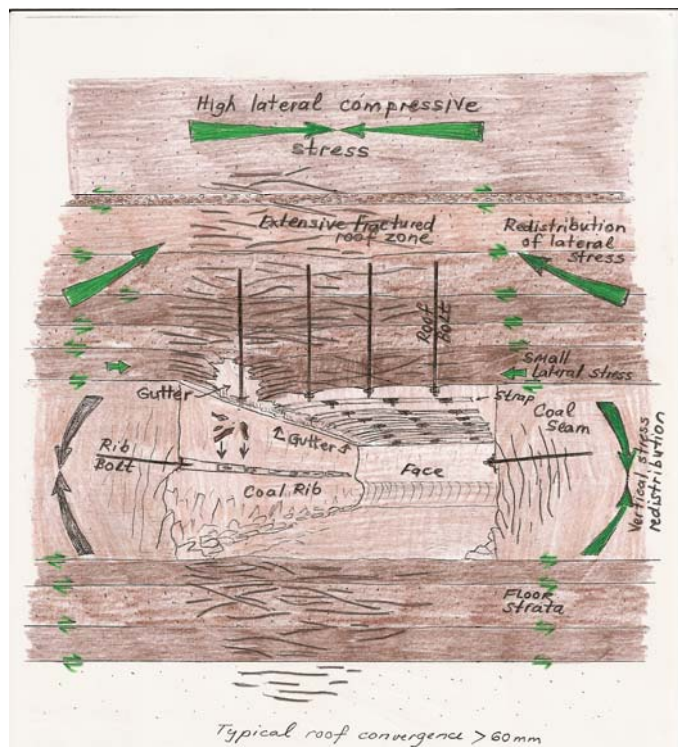 High lateral compressive
stress
Extensive fractured
roof zone
Redistribution
of lateral
stress
Roof
Bolt
Small
Lateral stress
Gutter
strap
Gutter
Coal
Seam
Rib
Bolt
Face
Coal Rib
Vertical stress
redistribution
FLOOR
strata
Typical roof convergence > 60mm